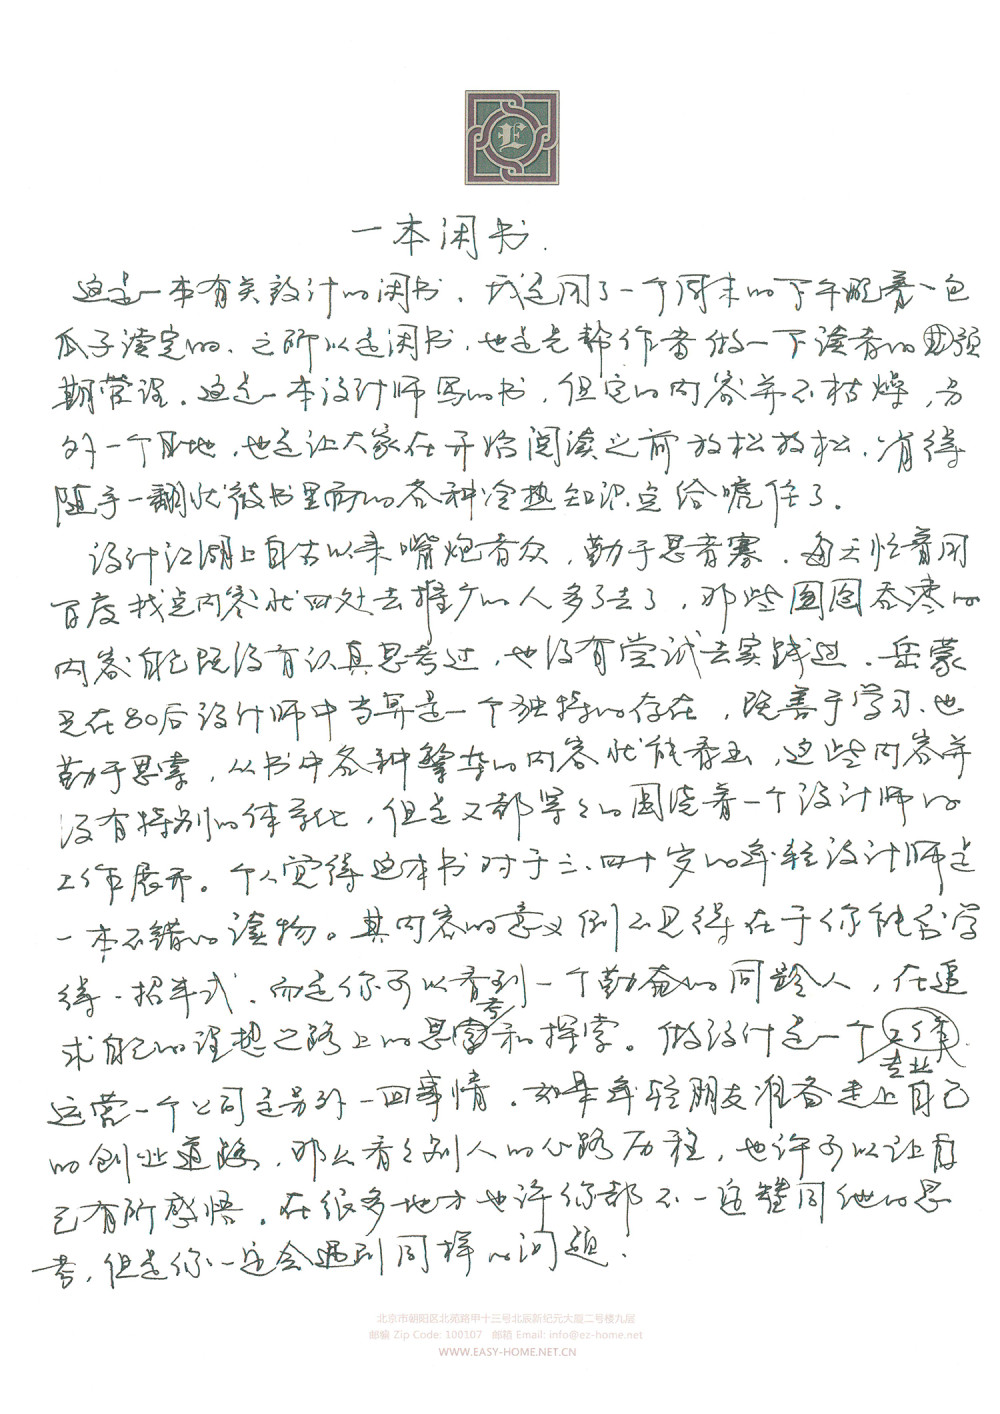 E
一本闲书.
这是一本有关设计的闲书.我是用了一个周末的下午脱着一包
瓜子读完的.之所以是闲书,也是先帮作者做一下读者的预
期管理.这是一本设计师写的书,但它的内容并不枯燥,另
外一个目地,也是让大家在开始阅读之前放松放松,省得
随手一翻就被书里面的各种冷热知识点给唬住了.
设计江湖上自古以来嘴炮者众,勤于思者寡.每天忙着用
百度找点内容就四处去推广的人多了去了,那些囫囵吞枣的
内容自己既没有认真思考过,也没有尝试去实践过.岳蒙
是在80后设计师中当算是一个独特的存在,既善于学习、也
勤于思索,从书中各种繁杂的内容就能看出,这些内容并
没有特别的体系化,但是又都紧紧的围绕着一个设计师的
工作展开。个人觉得这本书对于三、四十岁的年轻设计师是
一本不错的读物。其内容的意义倒不见得在于你能否学
得一招半式.而是你可以看到一个勤奋的同龄人,在追
求自己的理想之路上的思考和探索。做设计是一个专业.
运营一个公司是另外一回事情.如果年轻朋友准备走上自己
的创业道路,那么看看别人的心路历程,也许可以让自
己有所感悟.在很多地方也许你都不一定赞同他的思
考,但是你一定会遇到同样的问题.
北京市朝阳区北苑路甲十三号北辰新纪元大厦二号楼九层
邮编 Zip Code: 100107 邮箱 Email: info@ez-home.net
WWW.EASY-HOME.NET.CN